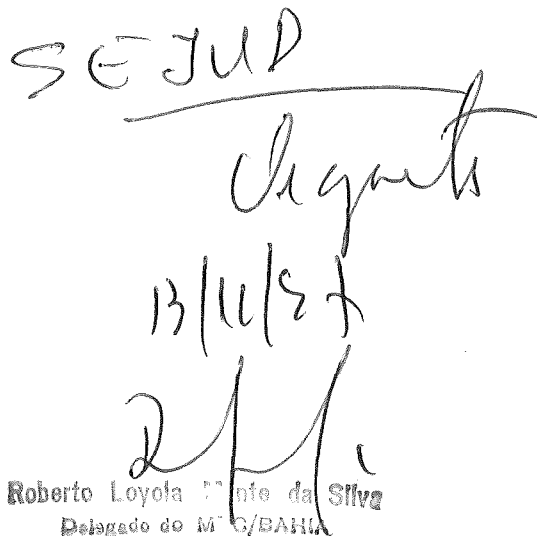 SEJUD
Urgente
13/11/87
Roberto Loyola da Silva
Delegado do /BAHIA